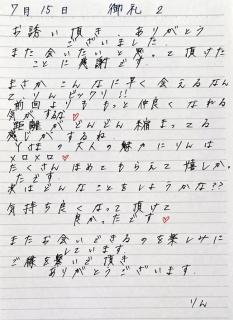 7月15日 御礼 2
お誘い頂き、ありがとう
ございました
また会いたいと思って頂けた
ことに感謝です
まさかこんなに早く会えるなんて
てりんビックリ!!
前回よりももっと仲良くなれる
気がするな♡
距離がどんどん縮まってる
感じがするね
Y様の大人の魅力にりんは
メロメロ♡
たくさんほめてもらえて嬉しか
ったです
次はどんなことをしようかな??
気持ち良くなって頂けて
良かったです♡
またお会いできるのを楽しみに
しています
ご縁を繋いで頂き
ありがとうございます.
りん